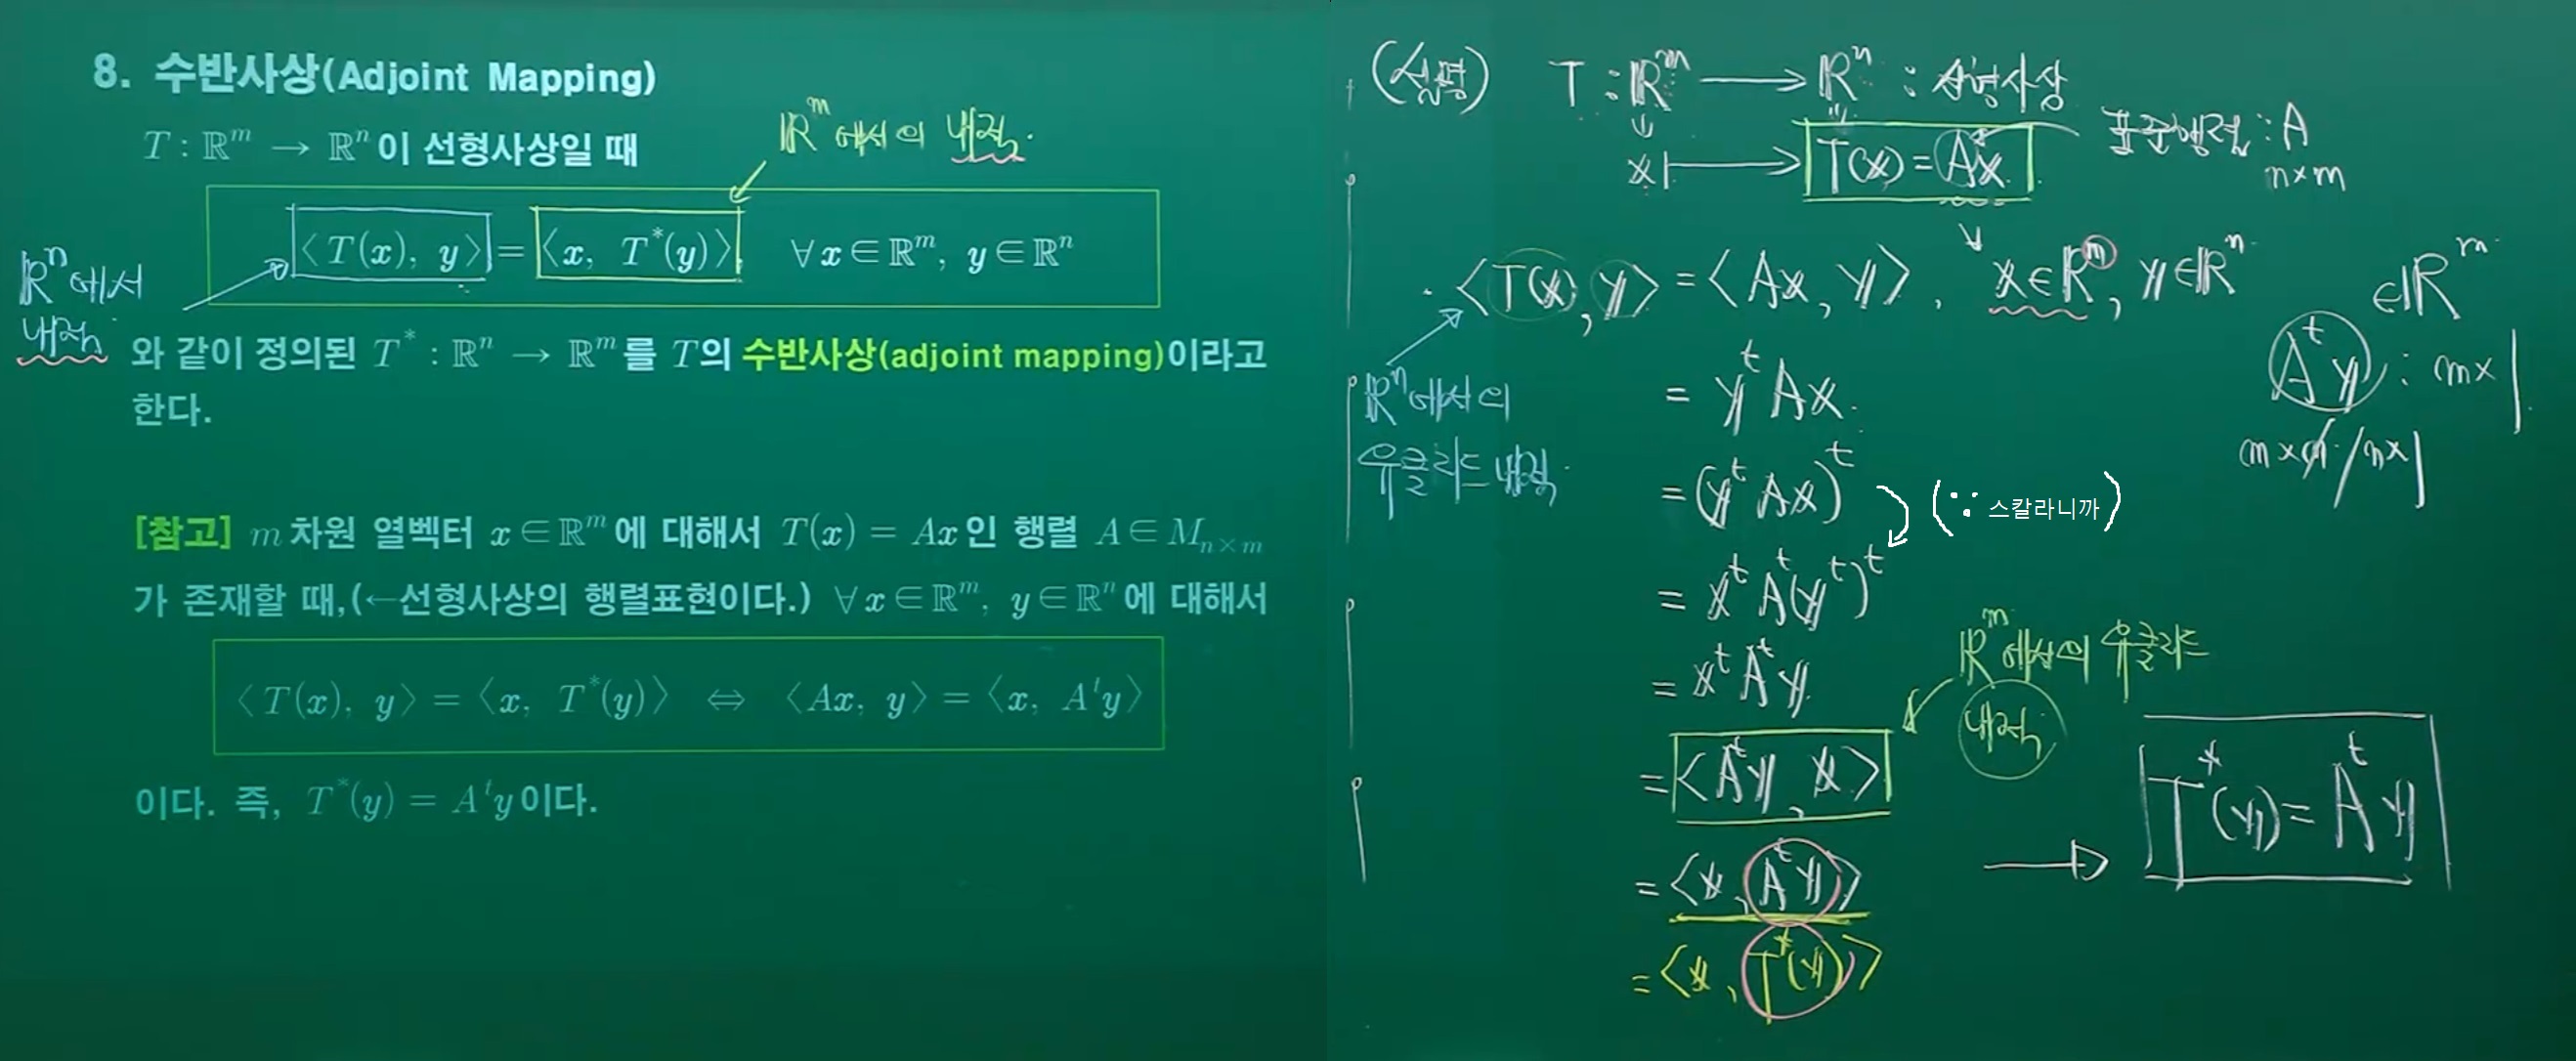 8. 수반사상(Adjoint Mapping)
T : ℝᵐ → ℝⁿ이 선형사상일 때
ℝᵐ에서의 내적.
⟨T(x), y⟩ = ⟨x, T*(y)⟩, ∀x∈ℝᵐ, y∈ℝⁿ
ℝⁿ에서
내적.
와 같이 정의된 T* : ℝⁿ → ℝᵐ를 T의 수반사상(adjoint mapping)이라고
한다.
[참고] m차원 열벡터 x∈ℝᵐ에 대해서 T(x) = Ax인 행렬 A∈Mₙ×ₘ
가 존재할 때,(←선형사상의 행렬표현이다.) ∀x∈ℝᵐ, y∈ℝⁿ에 대해서
⟨T(x), y⟩ = ⟨x, T*(y)⟩ ⇔ ⟨Ax, y⟩ = ⟨x, Aᵗy⟩
이다. 즉, T*(y) = Aᵗy이다.
(설명) T : ℝᵐ → ℝⁿ : 선형사상
x ↦ T(x) = Ax
표준행렬 : A
n×m
⟨T(x), y⟩ = ⟨Ax, y⟩, x∈ℝᵐ, y∈ℝⁿ
ℝⁿ에서의
유클리드 내적.
= yᵗAx.
= (yᵗAx)ᵗ
(∵ 스칼라니까)
= xᵗAᵗ(yᵗ)ᵗ
= xᵗAᵗy
= ⟨Aᵗy, x⟩
ℝᵐ에서의 유클리드
내적
= ⟨x, Aᵗy⟩
= ⟨x, T*(y)⟩
∈ℝᵐ
Aᵗy : m×1
m×n / n×1
→ T*(y) = Aᵗy